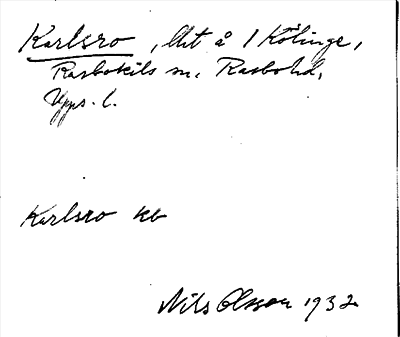 Karlsro, lht å 1 Kölinge,
Rasbokils sn, Rasbo hd,
Upps. l.
Karlsro kb
Nils Olsson 1932